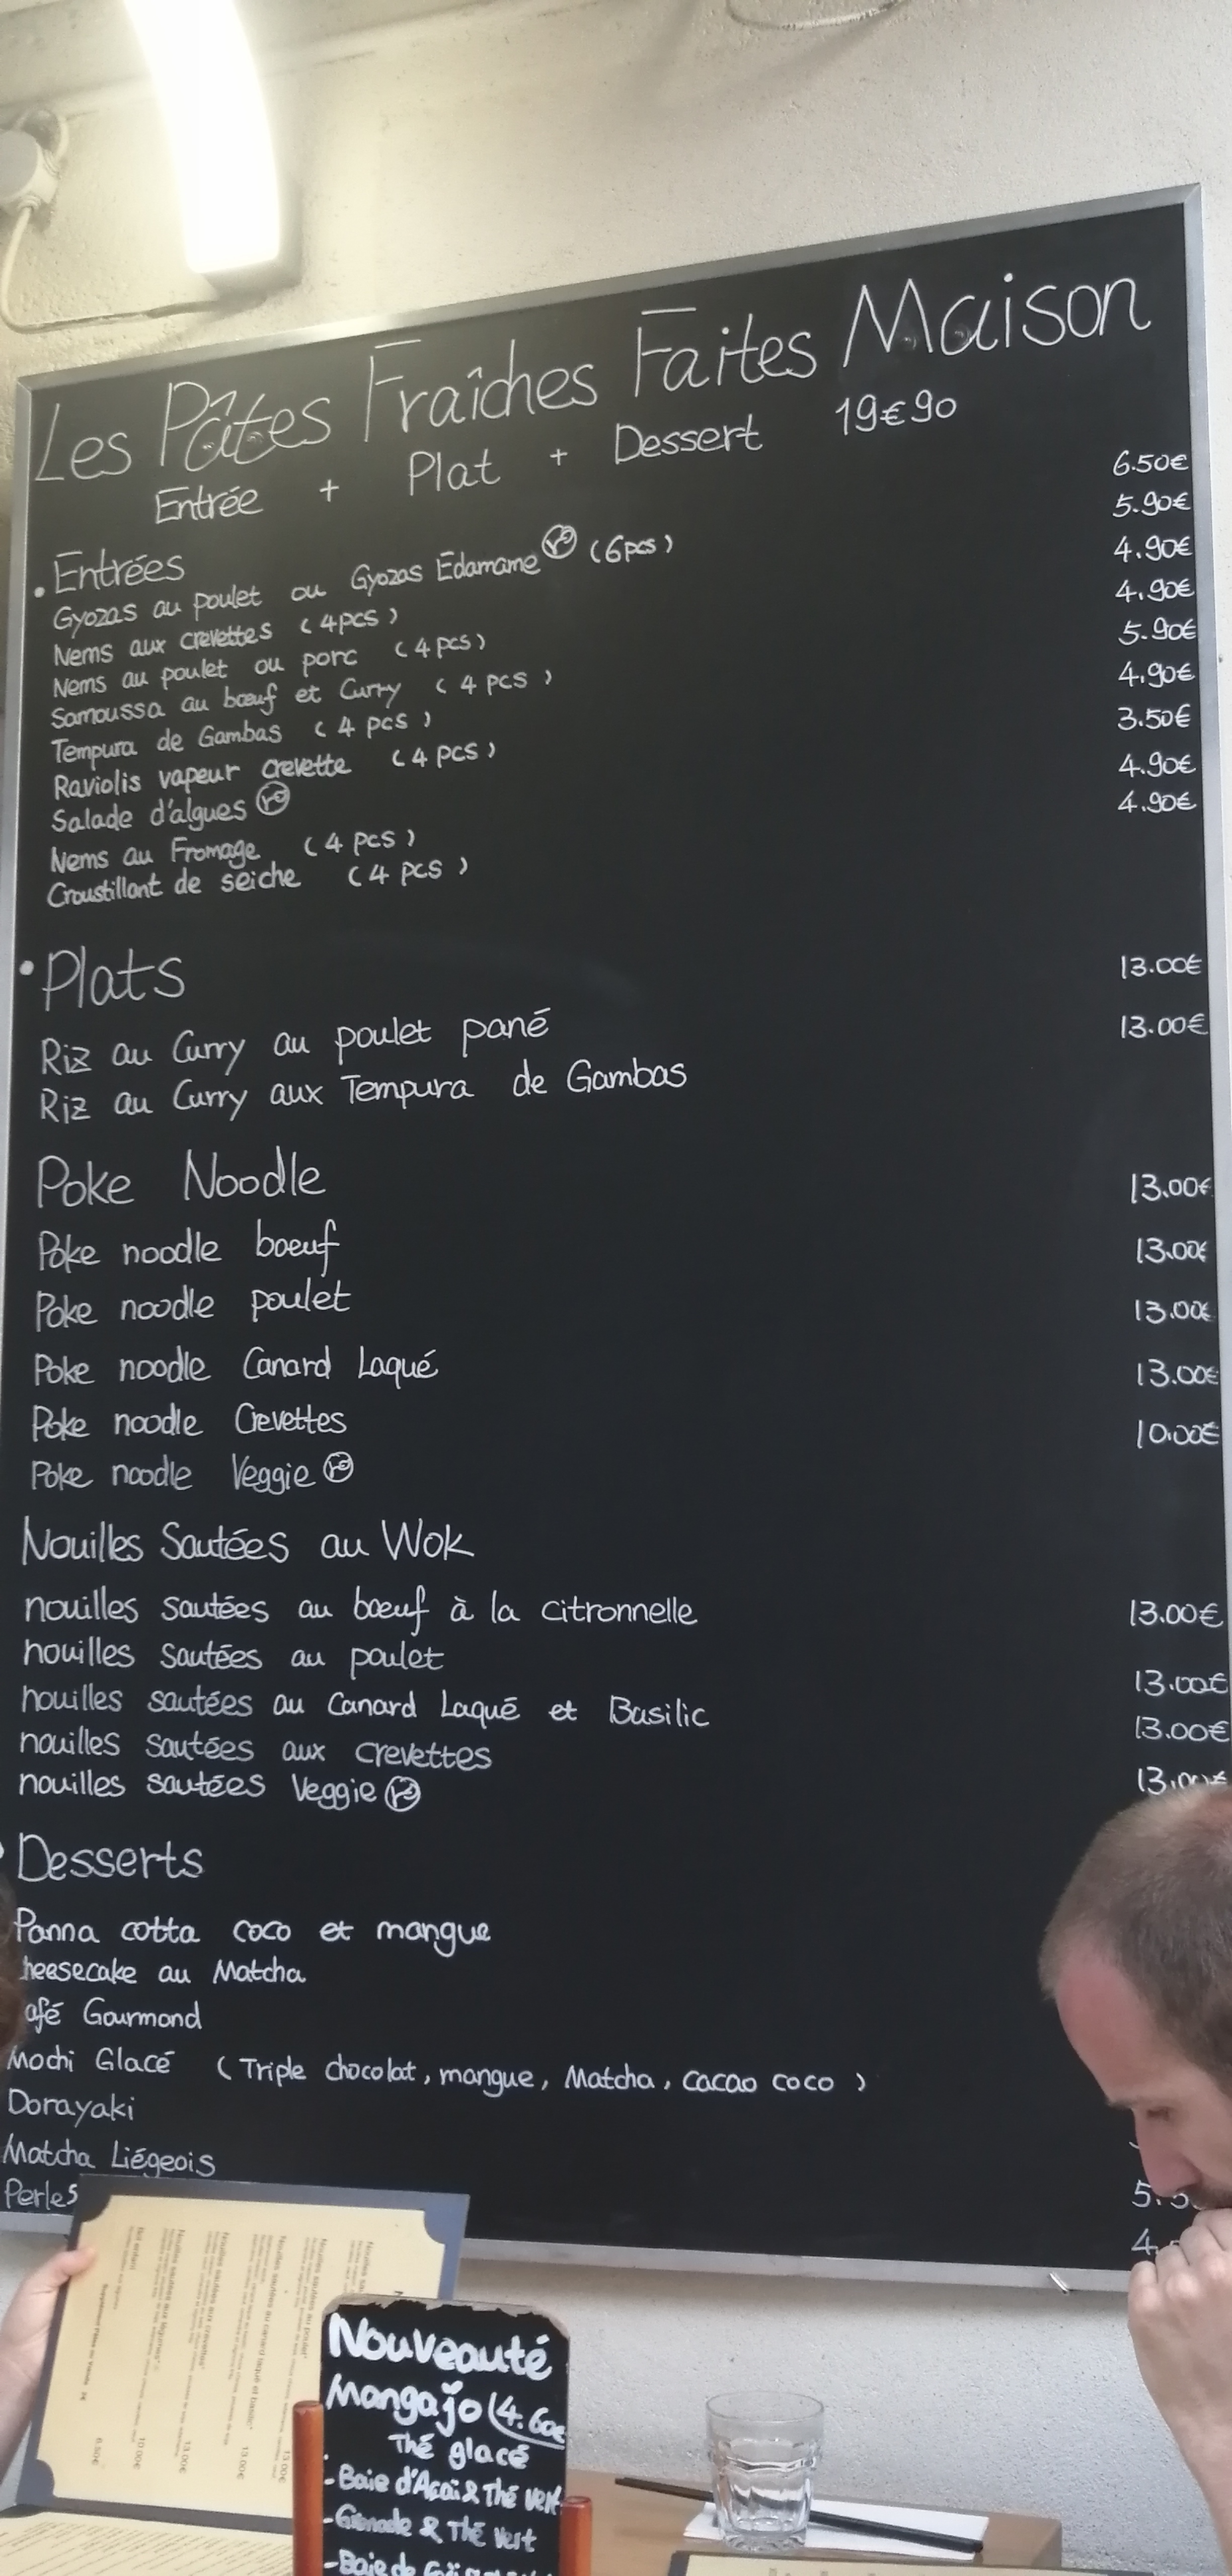 Les Pâtes Fraîches Faites Maison
Entrée + Plat + Dessert 19€90
• Entrées
Gyozas au poulet ou Gyozas Edamame (6pcs) 6.50€
Nems aux crevettes (4pcs) 5.90€
Nems au poulet ou porc (4pcs) 4.90€
Samoussa au bœuf et Curry (4 pcs) 4.90€
Tempura de Gambas (4 pcs) 5.90€
Raviolis vapeur crevette (4 pcs) 4.90€
Salade d'algues 3.50€
Nems au Fromage (4 pcs) 4.90€
Croustillant de seiche (4 pcs) 4.90€
• Plats
Riz au Curry au poulet pané 13.00€
Riz au Curry aux Tempura de Gambas 13.00€
Poke Noodle
Poke noodle boeuf 13.00€
Poke noodle poulet 13.00€
Poke noodle Canard Laqué 13.00€
Poke noodle Crevettes 13.00€
Poke noodle Veggie 10.00€
Nouilles Sautées au Wok
nouilles sautées au bœuf à la citronnelle 13.00€
nouilles sautées au poulet 13.00€
nouilles sautées au Canard Laqué et Basilic 13.00€
nouilles sautées aux crevettes 13.00€
nouilles sautées Veggie
Desserts
Panna cotta coco et mangue
heesecake au Matcha
afé Gourmand
Mochi Glacé (Triple chocolat, mangue, Matcha, cacao coco)
Dorayaki
Matcha Liégeois
Perles
Nouveauté
Mangajo (4.60€
Thé glacé
- Baie d'Açaï & Thé vert
- Grenade & Thé vert
- Baie de